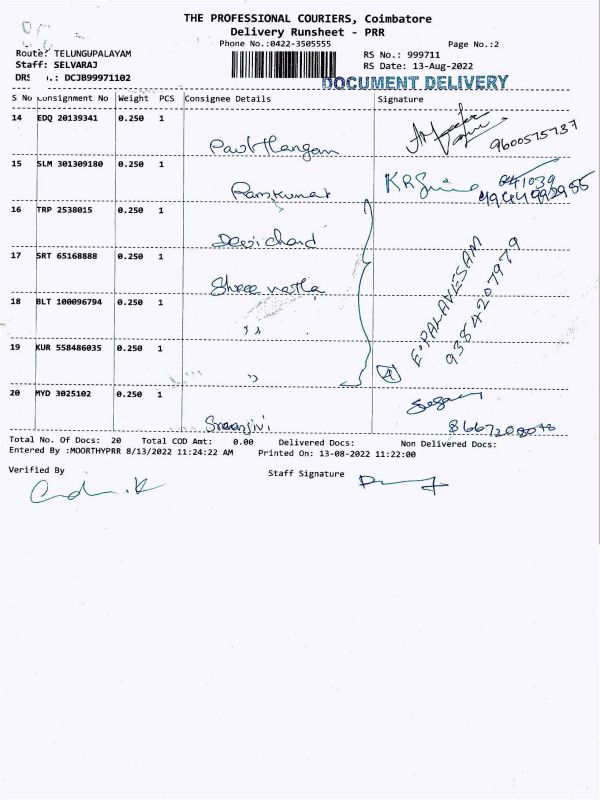 THE PROFESSIONAL COURIERS, Coimbatore
Delivery Runsheet - PRR
Phone No.:0422-3505555
Page No.:2
Route: TELUNGUPALAYAM
RS No.: 999711
Staff: SELVARAJ
RS Date: 13-Aug-2022
DRS No.: DCJB99971102
DOCUMENT DELIVERY
S No Consignment No Weight PCS Consignee Details Signature
14 EDQ 20139341 0.250 1
9600575737
15 SLM 301309180 0.250 1
Ramkumar
16 TRP 2538015 0.250 1
Devichand
17 SRT 65168888 0.250 1
Shree netla
E.PALAVESAM
9384207979
18 BLT 100096794 0.250 1
,,
19 KUR 558486035 0.250 1
,,
4
20 MYD 3025102 0.250 1
Total No. Of Docs: 20 Total COD Amt: 0.00 Delivered Docs: Non Delivered Docs:
Entered By :MOORTHYPRR 8/13/2022 11:24:22 AM Printed On: 13-08-2022 11:22:00
Verified By
Staff Signature